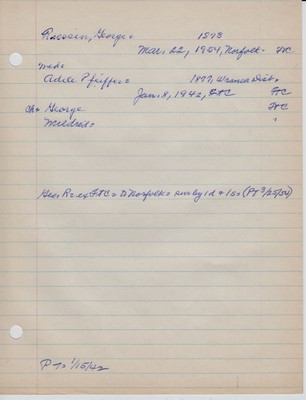 Roessen, George 1893
Mar. 22, 1954, Norfolk FTC
Wife
Adele Pfeiffer 1897, Warner Dist.
Jan. 8, 1942, FTC FTC
Ch George FTC
Mildred "
Geo. R= ex FTC= D Norfolk= sur by 1 d & 1 so (PT 3/25/54)
PT= 1/15/42